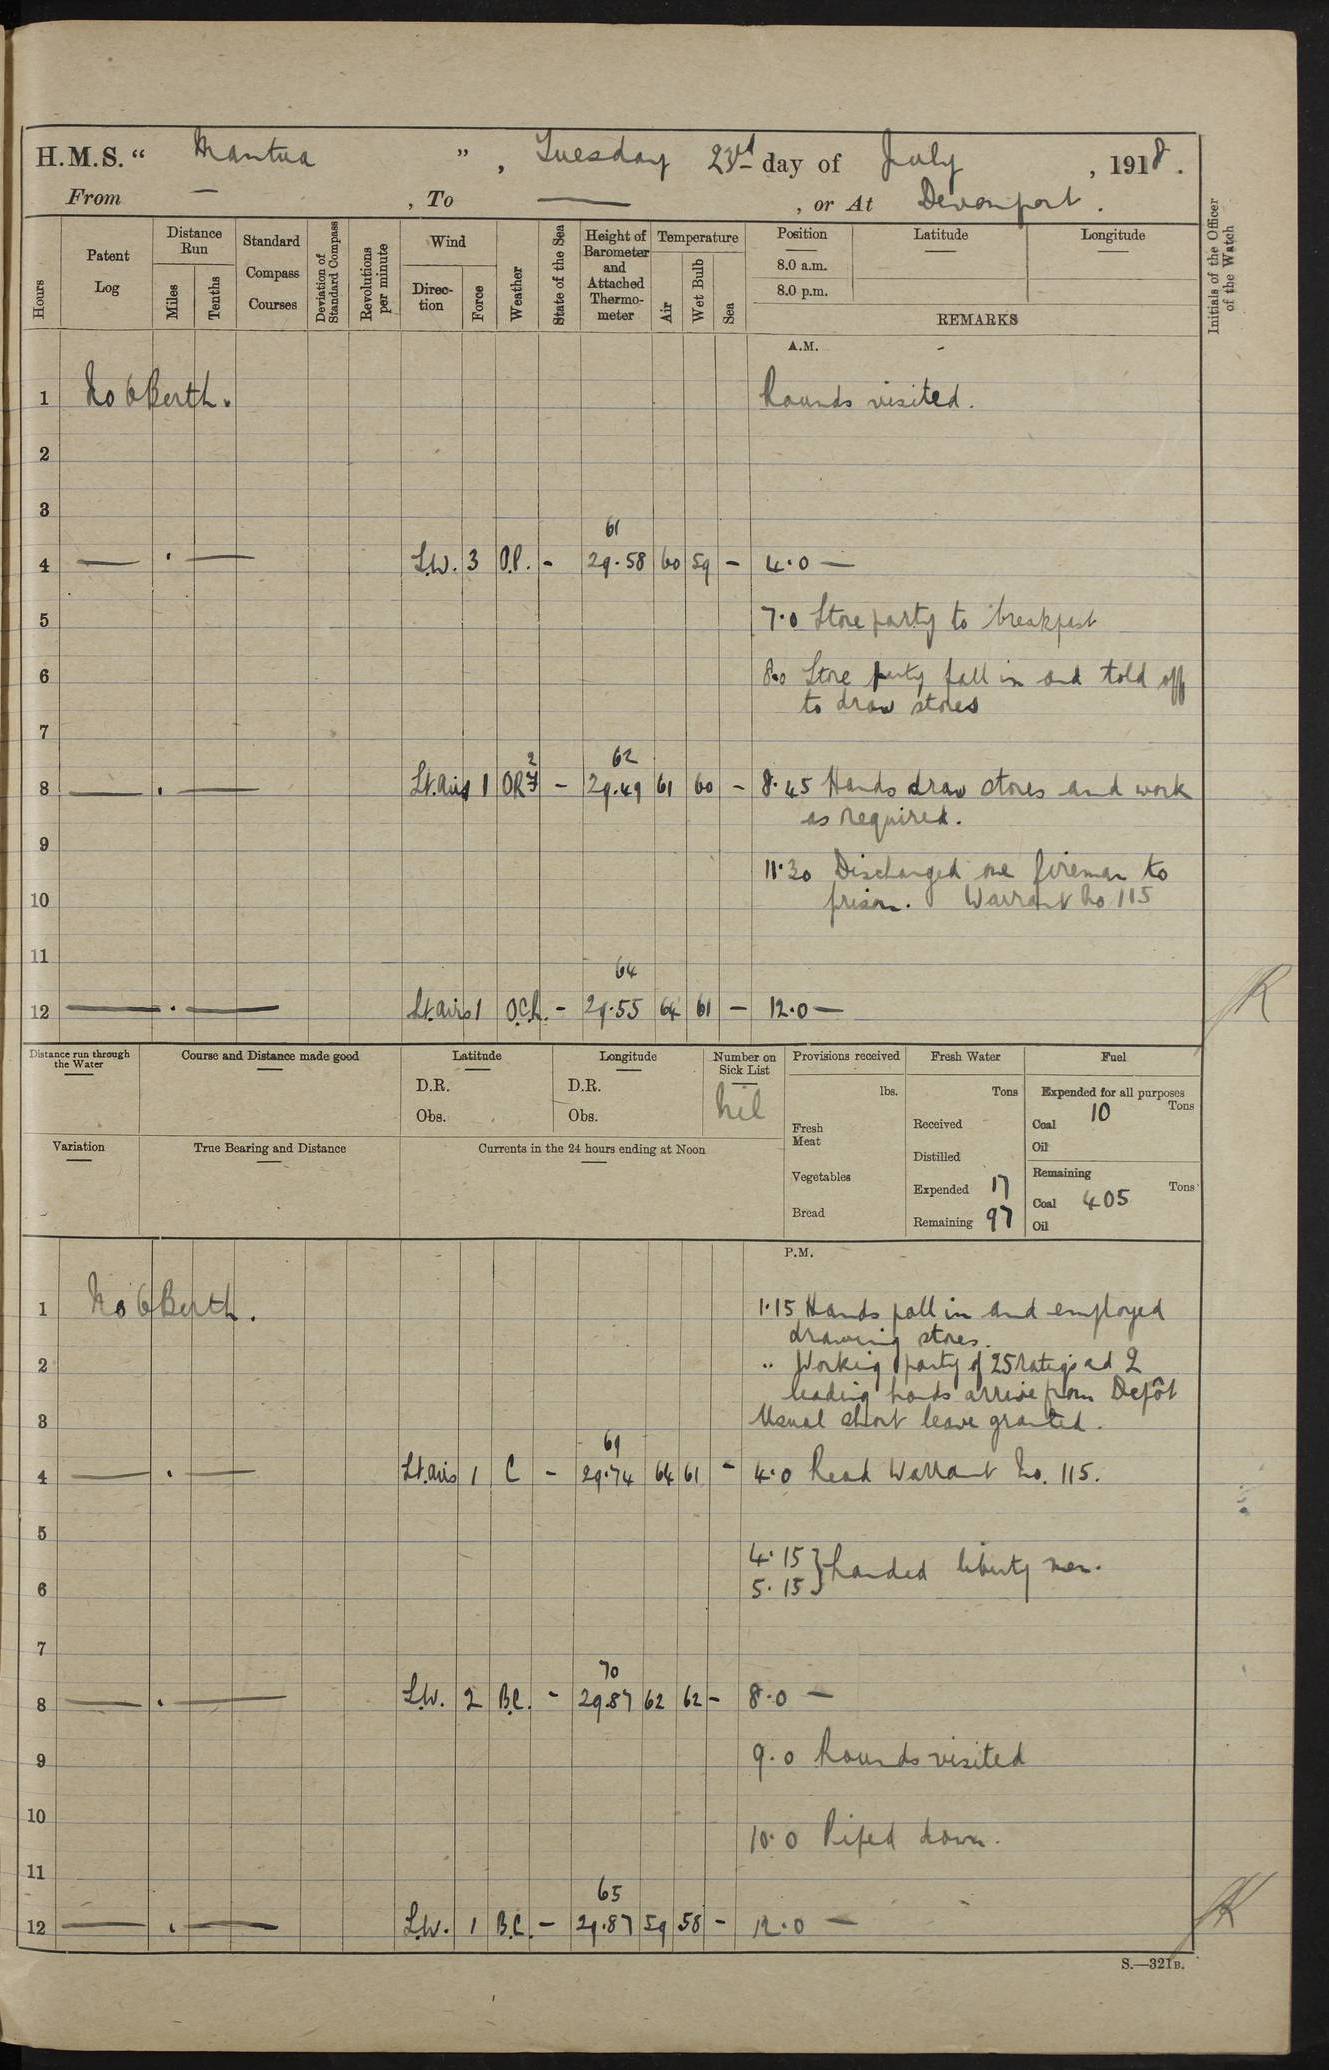 H.M.S. “ Mantua ” , Tuesday 23rd day of July , 1918 .
From — , To — , or At Devonport .
Hours
Patent Log
Distance Run
Miles
Tenths
Standard Compass Courses
Deviation of Standard Compass
Revolutions per minute
Wind
Direction
Force
Weather
State of the Sea
Height of Barometer and Attached Thermometer
Temperature
Air
Wet Bulb
Sea
Position
8.0 a.m.
8.0 p.m.
Latitude
Longitude
REMARKS
Initials of the Officer of the Watch
A.M.
1 No 6 Berth. Rounds visited.
2
3
61
4 — . — S.W. 3 O.P. - 29.58 60 59 - 4.0 —
5 7.0 Store party to breakfast
6 8.0 Store party fall in and told off
to draw stores
7
2 62
8 — . — Lt. airs 1 OR - 29.49 61 60 - 8.45 Hands draw stores and work
as required.
9
11.30 Discharged one fireman to
10 prison. Warrant No 115
11
64
12 — . — Lt. airs 1 - 29.55 64 61 - 12.0 —
Distance run through the Water
Course and Distance made good
Latitude
D.R.
Obs.
Longitude
D.R.
Obs.
Number on Sick List
Nil
Provisions received
lbs.
Fresh Meat
Vegetables
Bread
Fresh Water
Tons
Received
Distilled
Expended 17
Remaining 97
Fuel
Expended for all purposes
Tons
Coal 10
Oil
Remaining
Tons
Coal 405
Oil
Variation
True Bearing and Distance
Currents in the 24 hours ending at Noon
P.M.
1 No 6 Berth. 1.15 Hands fall in and employed
drawing stores.
2 " Working party of 25 ratings and 2
leading hands arrive from Depôt
3 Usual short leave granted.
69
4 — . — Lt. airs 1 C - 29.74 64 61 - 4.0 Read Warrant No. 115.
5
4.15 } Landed liberty men.
6 5.15
7
70
8 — . — S.W. 2 B.C. - 29.87 62 62 - 8.0 —
9 9.0 Rounds visited
10
10.0 Piped down.
11
65
12 — . — S.W. 1 B.C. - 29.87 59 58 - 12.0 —
S.—321B.